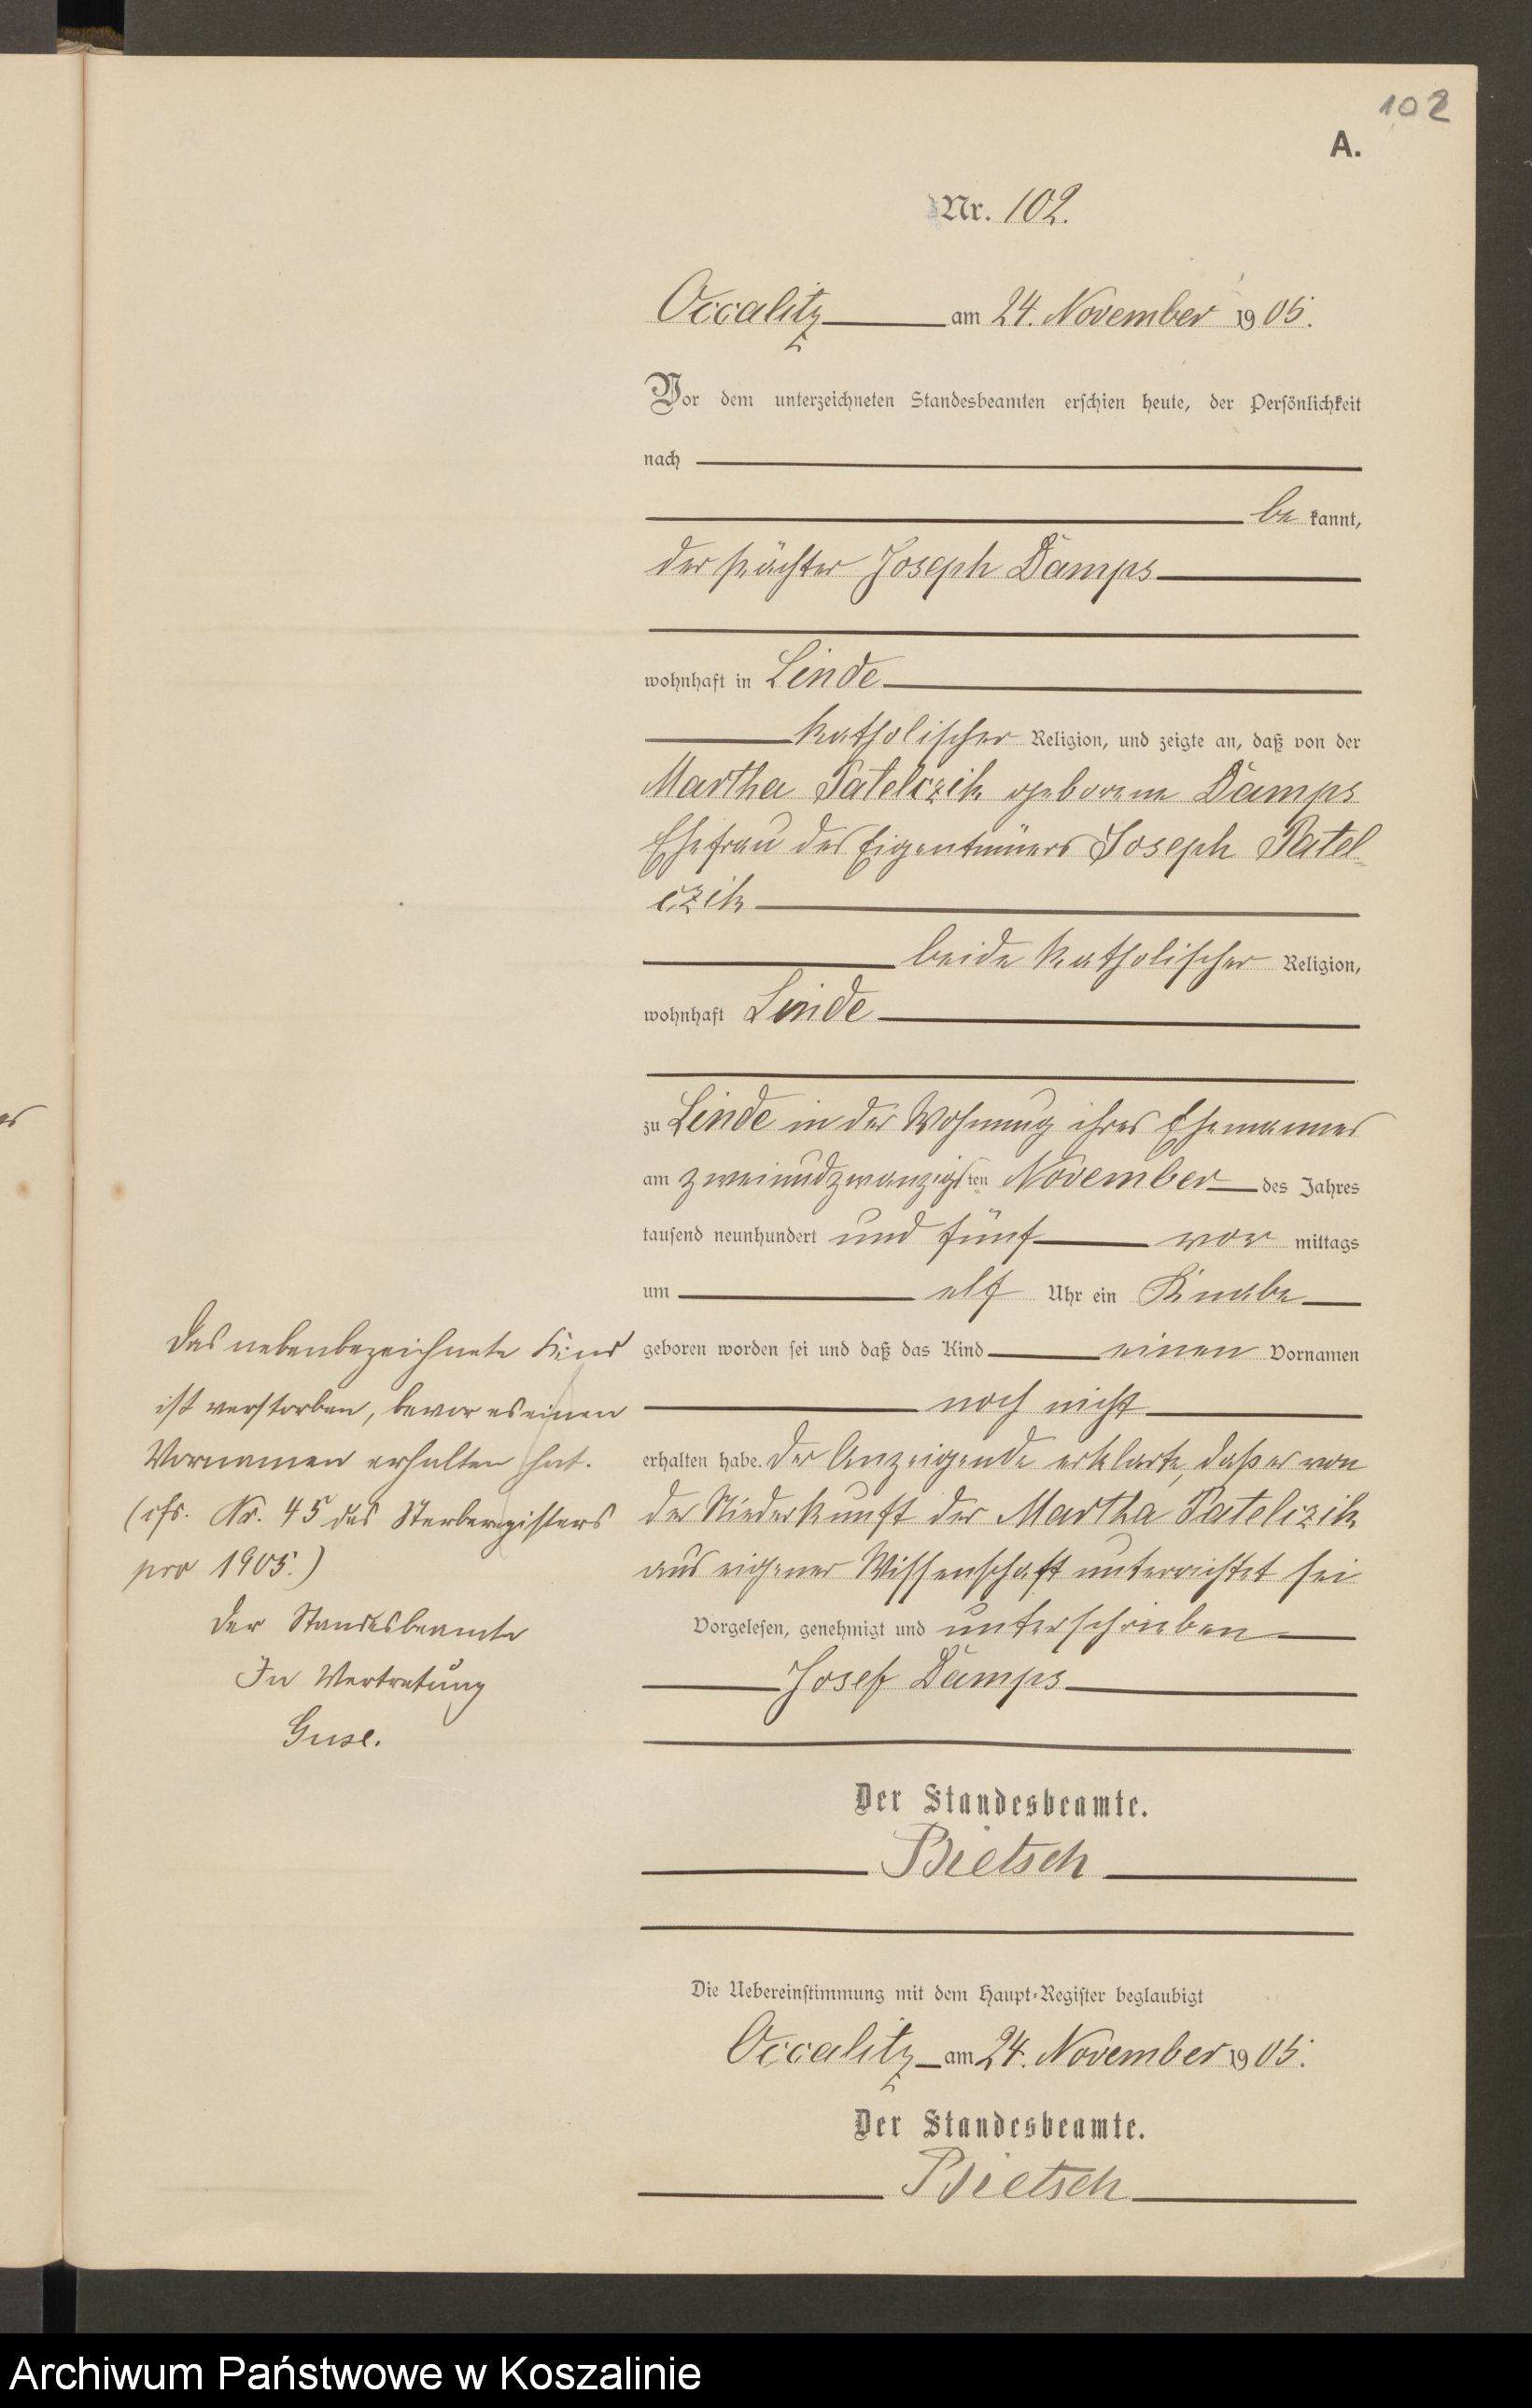 102
A.
Nr. 102.
Occalitz am 24. November 1905.
Vor dem unterzeichneten Standesbeamten erschien heute, der Persönlichkeit
nach
be kannt,
der Pächter Joseph Damps
wohnhaft in Linde
katholischer Religion, und zeigte an, daß von der
Martha Patelczik geborene Damps
Ehefrau des Eigentümers Joseph Patel-
czik
beide katholischer Religion,
wohnhaft Linde
zu Linde in der Wohnung ihres Ehemannes
am zweiundzwanzigsten November des Jahres
tausend neunhundert und fünf vor mittags
um elf Uhr ein Knabe
geboren worden sei und daß das Kind einen Vornamen
noch nicht
erhalten habe. Der Anzeigende erklärte, daß er von
der Niederkunft der Martha Patelczik
aus eigener Wissenschaft unterrichtet sei
Vorgelesen, genehmigt und unterschrieben
Josef Damps
Der Standesbeamte.
Bietsch
Die Uebereinstimmung mit dem Haupt-Register beglaubigt
Occalitz am 24. November 1905.
Der Standesbeamte.
Bietsch
Das nebenbezeichnete Kind
ist verstorben, bevor es einen
Vornamen erhalten hat.
(cfr. Nr. 45 des Sterberegisters
pro 1905.)
Der Standesbeamte
In Vertretung
Guse.
Archiwum Państwowe w Koszalinie